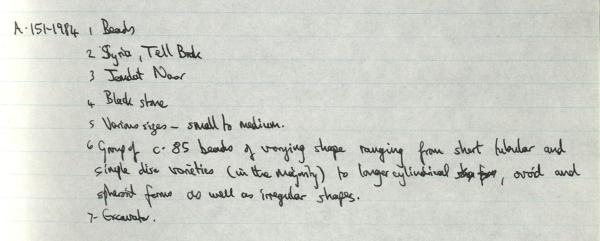 A.151-1984 1 Beads
2 Syria, Tell Brak
3 Jemdat Nasr
4 Black stone
5 Various sizes - small to medium.
6 Group of c. 85 beads of varying shape ranging from short tubular and
simple disc varieties (in the majority) to longer cylindrical, ovoid and
spheroid forms as well as irregular shapes.
7- Excavator.